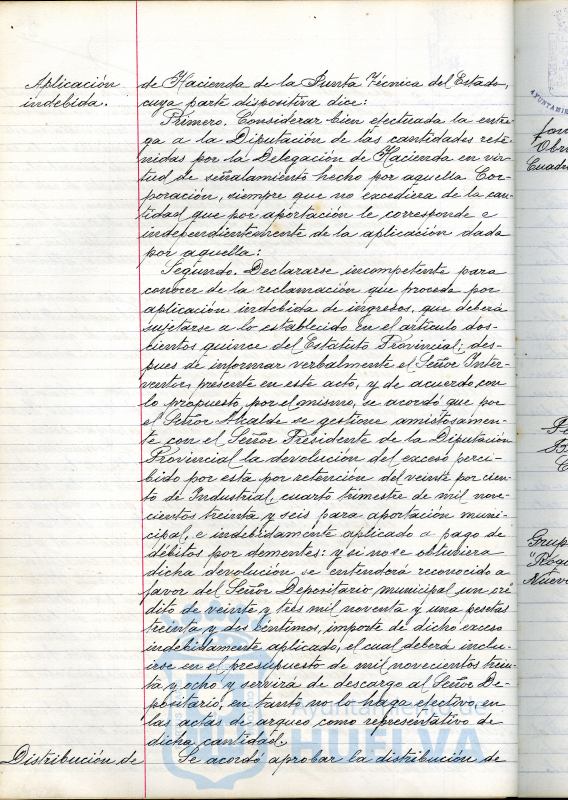 Aplicación
indebida.
de Hacienda de la Junta Técnica del Estado,
cuya parte dispositiva dice:
Primero. Considerar bien efectuada la entre-
ga a la Diputación de las cantidades rete-
nidas por la Delegación de Hacienda en vir-
tud de señalamiento hecho por aquella Cor-
poración, siempre que no excediera de la can-
tidad que por aportación le corresponde e
independientemente de la aplicación dada
por aquella:
Segundo. Declararse incompetente para
conocer de la reclamación que proceda por
aplicación indebida de ingresos, que deberá
sujetarse a lo establecido en el artículo dos-
cientos quince del Estatuto Provincial; des-
pues de informar verbalmente el Señor Inter-
ventor, presente en este acto, y de acuerdo con
lo propuesto por el mismo, se acordó que por
el Señor Alcalde se gestione amistosamen-
te con el Señor Presidente de la Diputación
Provincial la devolución del exceso perci-
bido por esta por retención del veinte por cien-
to de Industrial, cuarto trimestre de mil nove-
cientos treinta y seis para aportación muni-
cipal, e indebidamente aplicado a pago de
débitos por dementes: y si no se obtuviera
dicha devolución se entenderá reconocido a
favor del Señor Depositario municipal un cré
dito de veinte y tres mil noventa y una pesetas
treinta y dos céntimos, importe de dicho exceso
indebidamente aplicado, el cual deberá inclu-
irse en el presupuesto de mil novecientos trein-
ta y ocho y servirá de descargo al Señor De-
positario, en tanto no lo haga efectivo, en
las actas de arqueo como representativo de
dicha cantidad.
Distribución de
Se acordó aprobar la distribución de
Ayuntamiento de
HUELVA
AYUNTAMIE
Obr
Cuadr
Grup
Nuev